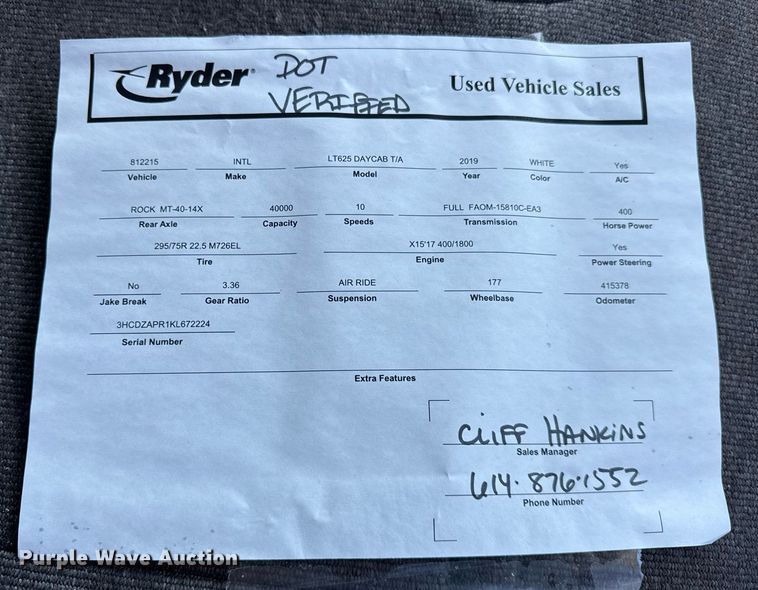 Ryder DOT Used Vehicle Sales
VERIFIED
812215 INTL LT625 DAYCAB T/A 2019 WHITE Yes
Vehicle Make Model Year Color A/C
ROCK MT-40-14X 40000 10 FULL FAOM-15810C-EA3 400
Rear Axle Capacity Speeds Transmission Horse Power
295/75R 22.5 M726EL X15'17 400/1800 Yes
Tire Engine Power Steering
No 3.36 AIR RIDE 177 415378
Jake Break Gear Ratio Suspension Wheelbase Odometer
3HCDZAPR1KL672224
Serial Number
Extra Features
CLIFF HANKINS
Sales Manager
614·876·1552
Phone Number
Purple Wave Auction